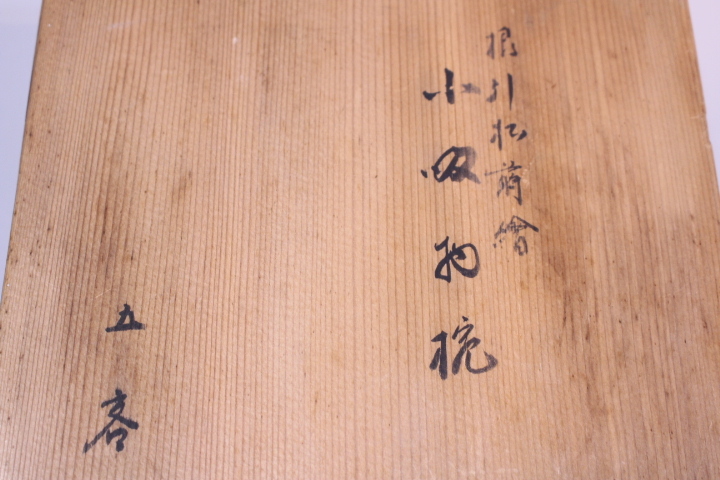 根引松蒔繪
小吸物椀
五客